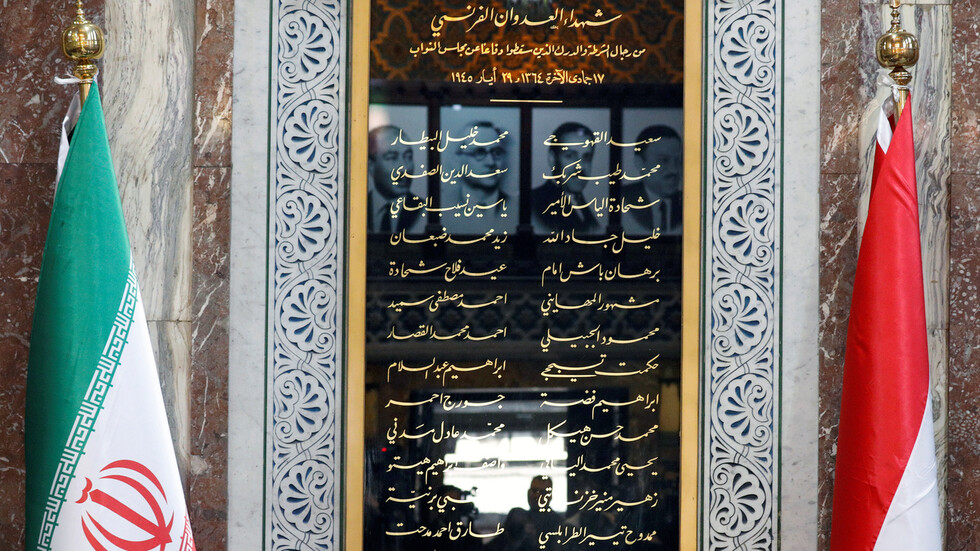 شهداء العدوان الفرنسي
من رجال الشرطة والدرك الذين سقطوا دفاعا عن مجلس النواب
١٧ جمادى الآخرة ١٣٦٤ ه ٢٩ أيار ١٩٤٥
سعيد القهوجي
محمد طيب شربك
شحادة الياس الأمير
خليل جاد الله
برهان باش امام
مشهور المهايني
محمود الجبيلي
حكمت تسبحجي
ابراهيم فضة
محمد حسن هيكل
يحيى محمد اليافي
زهير منير خزنه
ممدوح تيسير الطرابلسي
محمد خليل البيطار
سعد الدين الصفدي
ياسين نسيب البقاعي
زيد محمد ضبعان
عيد فلاح شحادة
احمد مصطفى سميد
احمد محمد القصار
ابراهيم عبد السلام
جورج احمر
محمد عادل مدني
واصف ابراهيم هيتو
برنية
طارق احمد مدحت